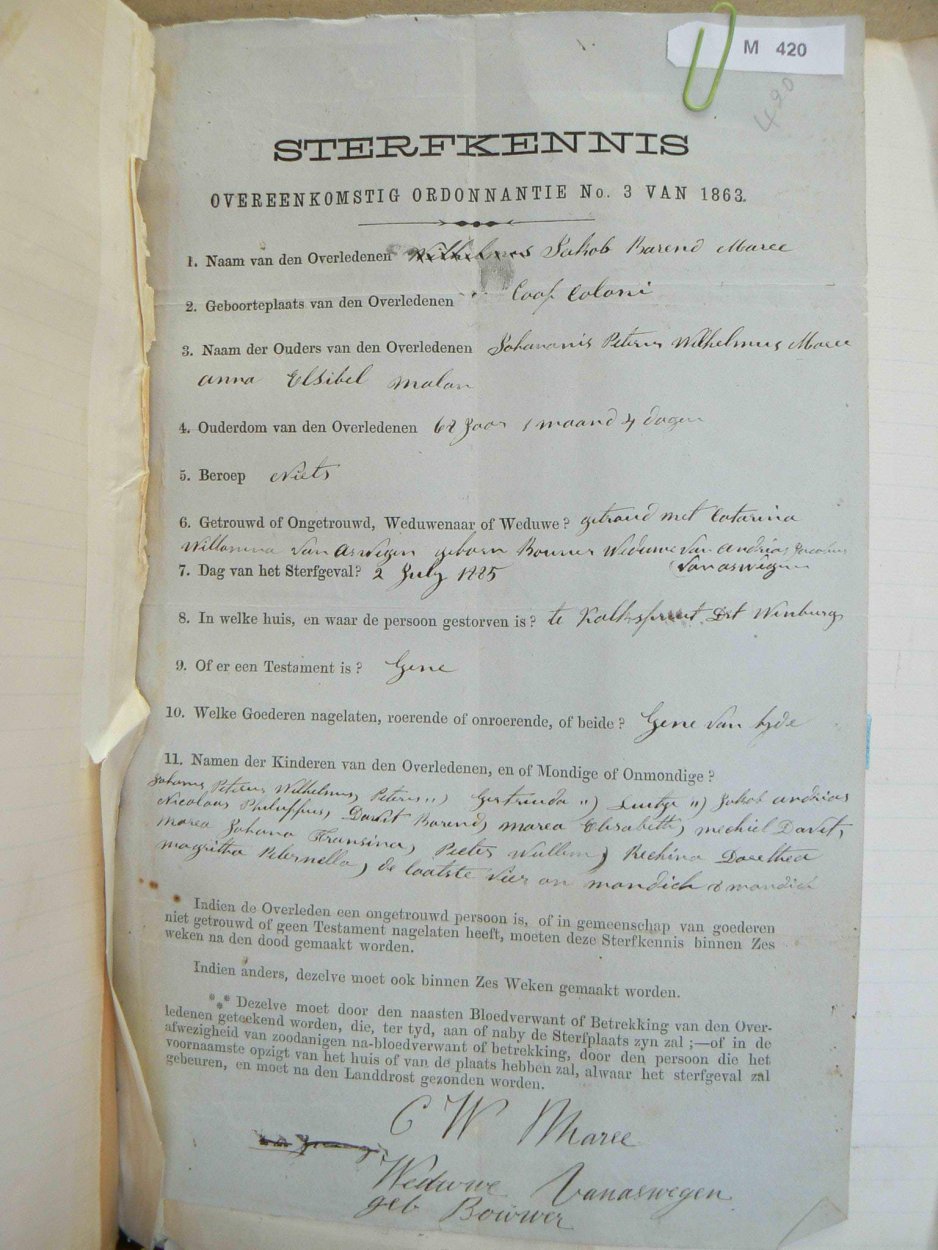 M 420
490
STERFKENNIS
OVEREENKOMSTIG ORDONNANTIE No. 3 VAN 1863.
1. Naam van den Overledenen Wilhelmus Jakob Barend Maree
2. Geboorteplaats van den Overledenen Coop Coloni
3. Naam der Ouders van den Overledenen Johannis Petrus Wilhelmus Maree
anna Elsibel malan
4. Ouderdom van den Overledenen Jaar 1 maand 4 dagen
5. Beroep Niets
6. Getrouwd of Ongetrouwd, Weduwenaar of Weduwe? getroud met Catarina
Willemina Van Aswegen geborn Bouwer Weduwe Van Andries Jacobus
Vanaswegen
7. Dag van het Sterfgeval? 2 July 1885
8. In welke huis, en waar de persoon gestorven is? te Kalkspruit Dst Winburg
9. Of er een Testament is? Gene
10. Welke Goederen nagelaten, roerende of onroerende, of beide? Gene Van byde
11. Namen der Kinderen van den Overledenen, en of Mondige of Onmondige?
Johannes Petrus Wilhelmus, Petrus ") Gertruida ") ") Jakob andrias
Nicolaas Philippus, Davit Barend, marea Elisabeth, mechiel Davit,
marea Johana Fransina, Pieter Willem, Rechina Dorethea
magritha Peternella, de laatste vier on mondich & mondich
Indien de Overleden een ongetrouwd persoon is, of in gemeenschap van goederen
niet getrouwd of geen Testament nagelaten heeft, moeten deze Sterfkennis binnen Zes
weken na den dood gemaakt worden.
Indien anders, dezelve moet ook binnen Zes Weken gemaakt worden.
*** Dezelve moet door den naasten Bloedverwant of Betrekking van den Over-
ledenen geteekend worden, die, ter tyd, aan of naby de Sterfplaats zyn zal;—of in de
afwezigheid van zoodanigen na-bloedverwant of betrekking, door den persoon die het
voornaamste opzigt van het huis of van de plaats hebben zal, alwaar het sterfgeval zal
gebeuren, en moet na den Landdrost gezonden worden.
C W Maree
Weduwe Vanaswegen
geb Bouwer